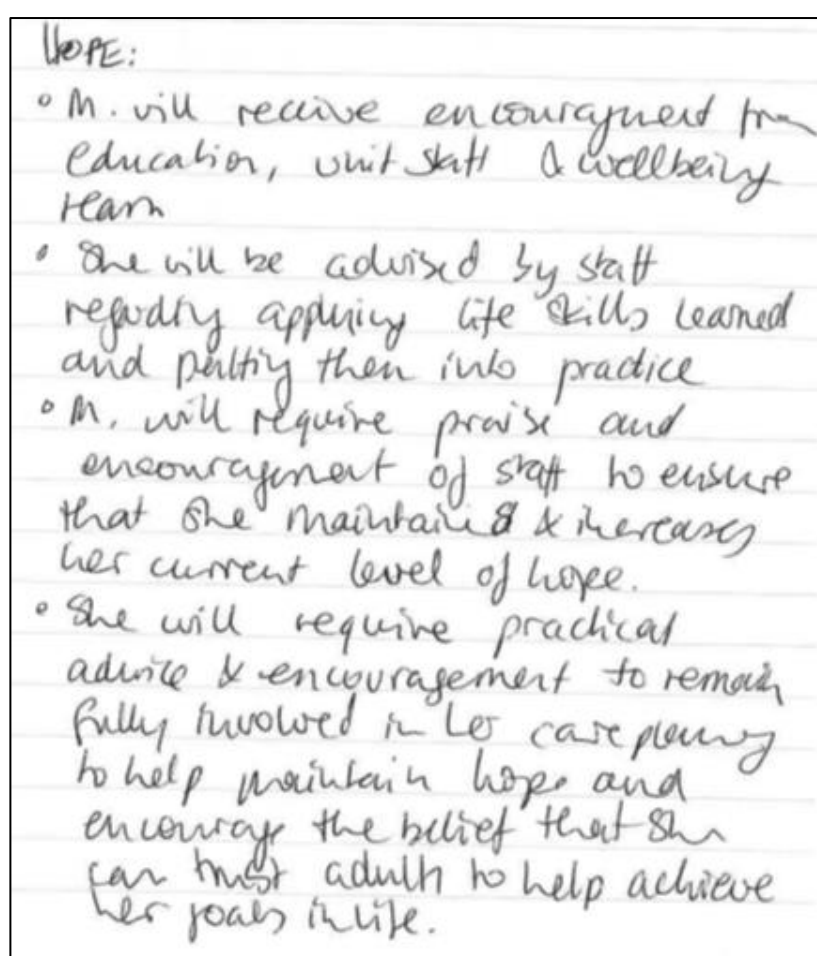 HOPE:
• M. will receive encouragment from
education, unit staff & wellbeing
team
• She will be advised by staff
regarding applying life skills learned
and putting them into practice
• M. will require praise and
encouragement of staff to ensure
that she maintains & increases
her current level of hope.
• She will require practical
advice & encouragement to remain
fully involved in her care planning
to help maintain hope and
encourage the belief that she
can trust adults to help achieve
her goals in life.